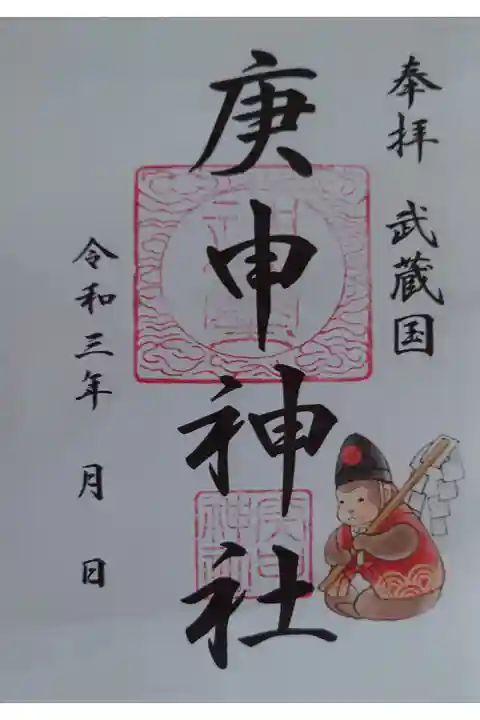 奉拝 武蔵国
庚申神社
令和三年 月 日